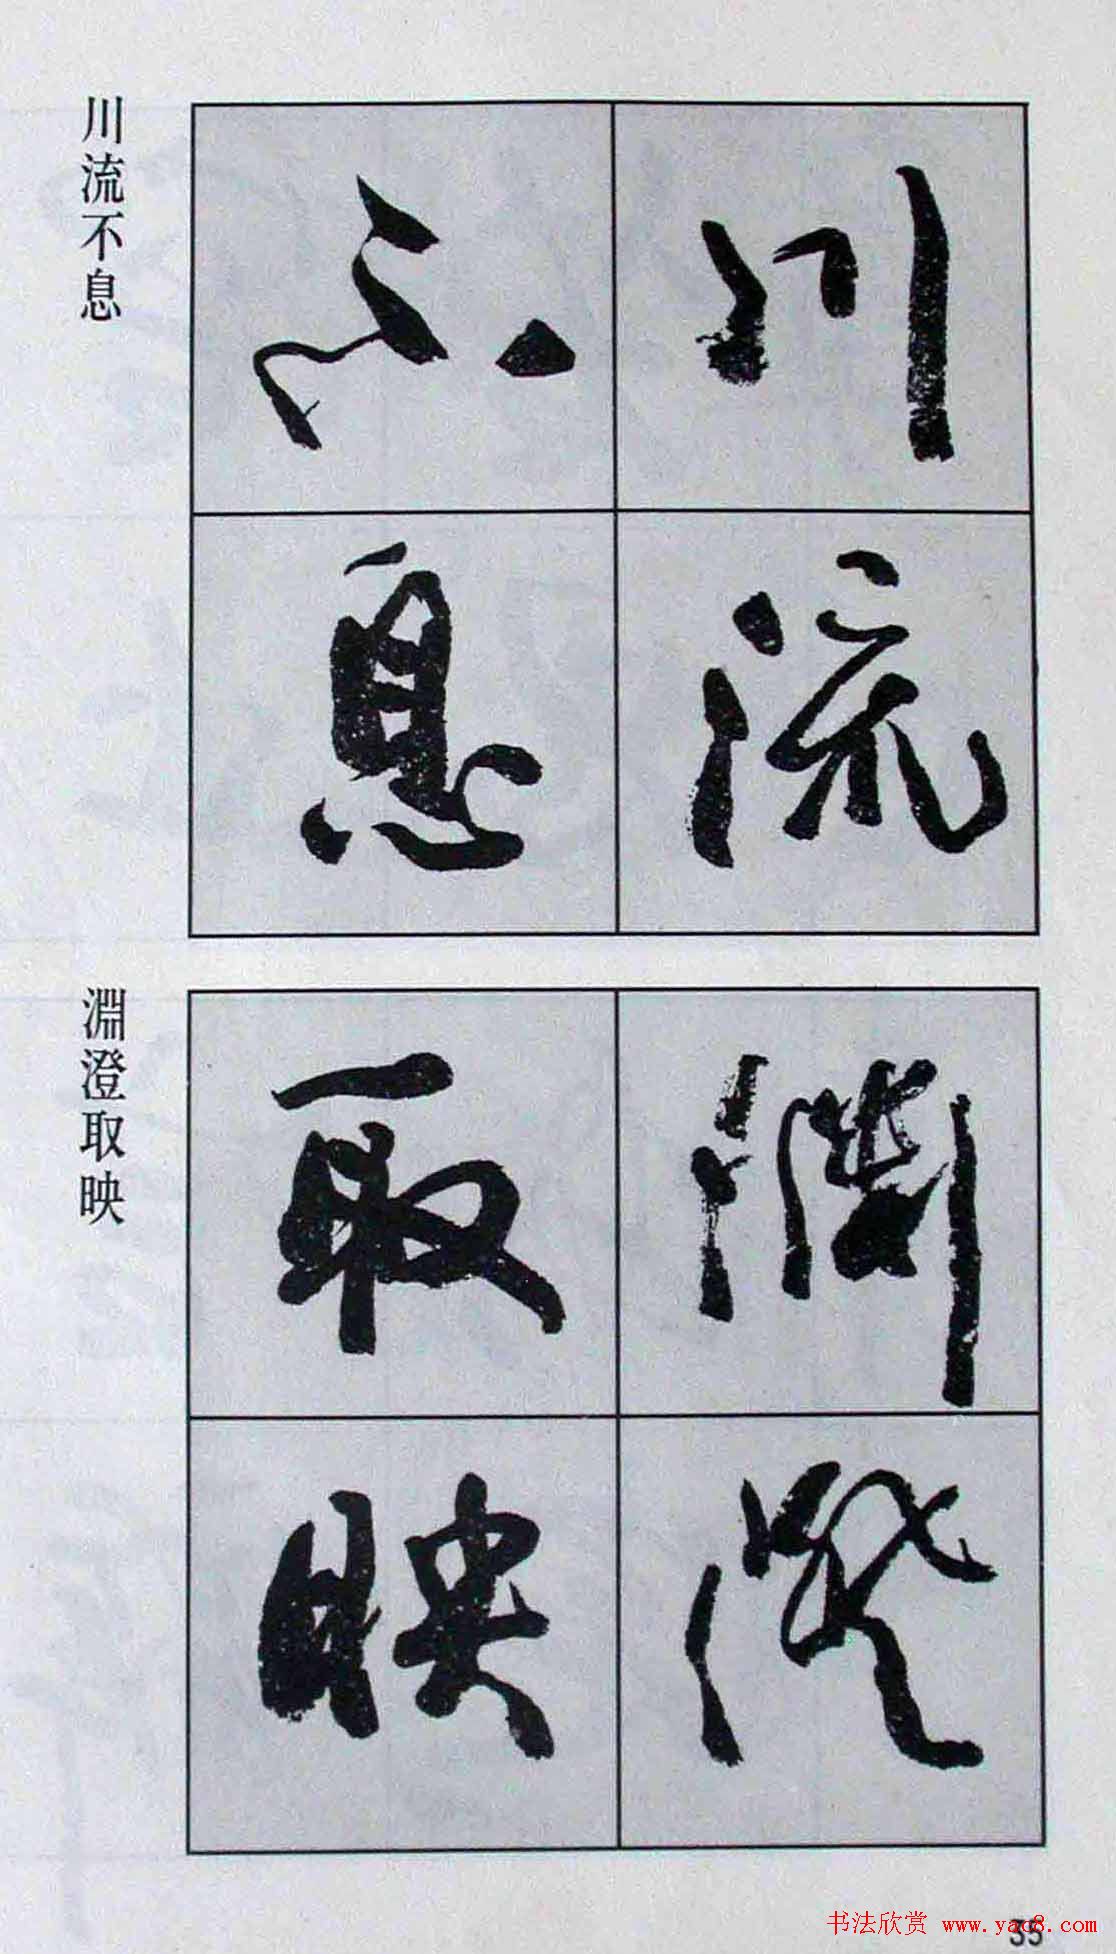 川流
不息
川流不息
淵澄
取映
淵澄取映
35
书法欣赏 www.yac8.com